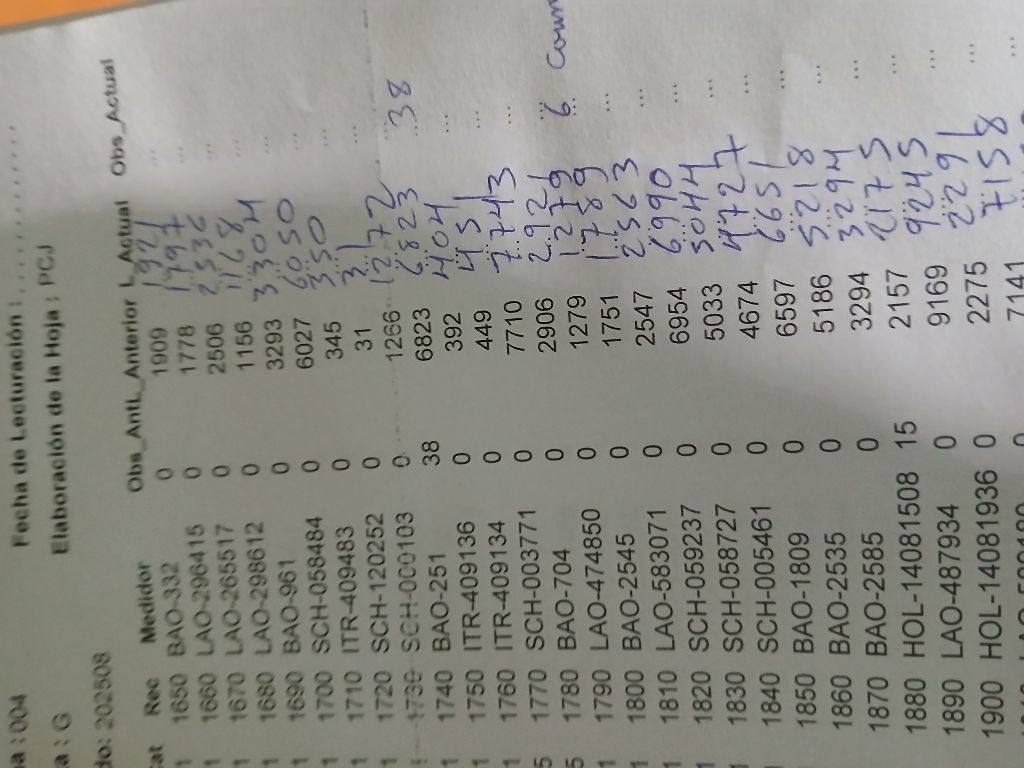 a : 004 Fecha de Lecturación : ..................
a : G Elaboración de la Hoja : PCJ
do: 202508
cat Rec Medidor Obs_Anti_Anterior L_Actual Obs_Actual
1 1650 BAO-332 0 1909 1921 ...
1 1660 LAO-296415 0 1778 1797 ...
1 1670 LAO-265517 0 2506 2536 ...
1 1680 LAO-298612 0 1156 1168 ...
1 1690 BAO-961 0 3293 3304 ...
1 1700 SCH-058484 0 6027 6050 ...
1 1710 ITR-409483 0 345 350 ...
1 1720 SCH-120252 0 31 31 ...
1 1730 SCH-000103 0 1266 1272 ...
1 1740 BAO-251 38 6823 6823 38
1 1750 ITR-409136 0 392 404 ...
1 1760 ITR-409134 0 449 451 ...
5 1770 SCH-003771 0 7710 7743 ...
5 1780 BAO-704 0 2906 2921 ...
1 1790 LAO-474850 0 1279 1279 6
1 1800 BAO-2545 0 1751 1789 ...
1 1810 LAO-583071 0 2547 2563 ...
1 1820 SCH-059237 0 6954 6990 ...
1 1830 SCH-058727 0 5033 5044 ...
1 1840 SCH-005461 0 4674 4727 ...
1 1850 BAO-1809 0 6597 6651 ...
1 1860 BAO-2535 0 5186 5218 ...
1 1870 BAO-2585 0 3294 3294 ...
1 1880 HOL-14081508 15 2157 2175 ...
1 1890 LAO-487934 0 9169 9245 ...
1 1900 HOL-14081936 0 2275 2291 ...
0 7141 7158 ...